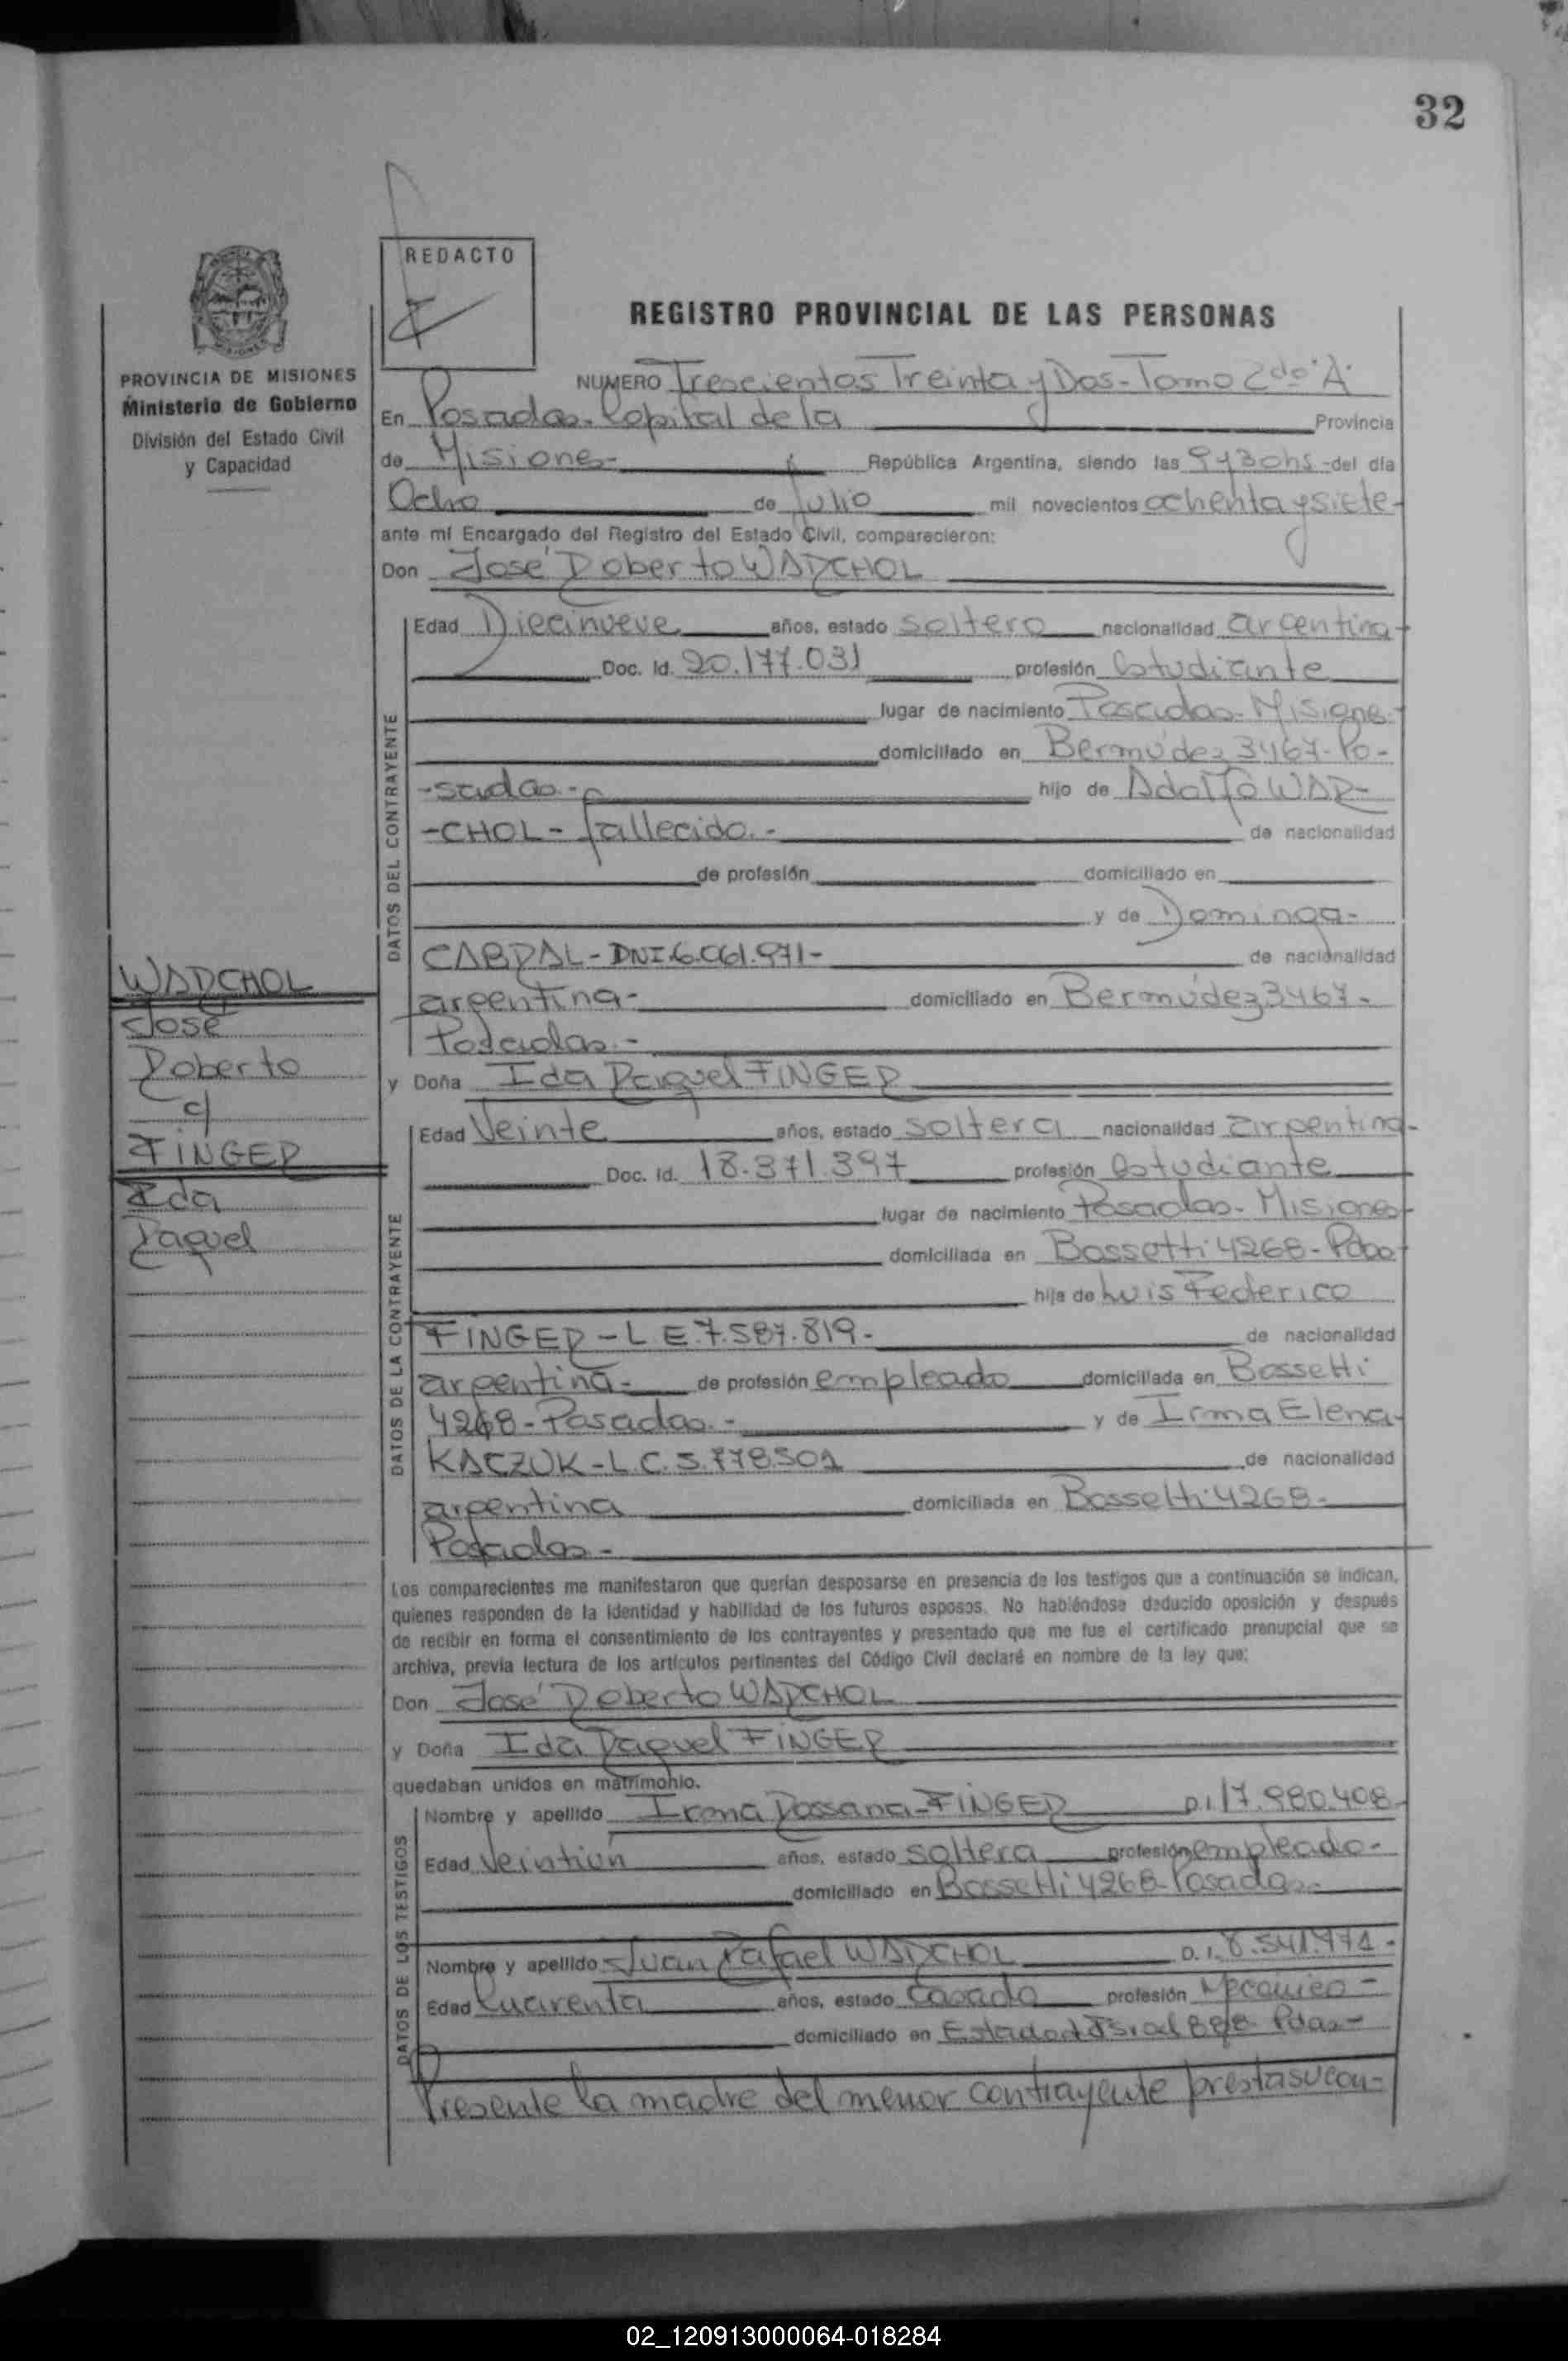 32
REDACTO
REGISTRO PROVINCIAL DE LAS PERSONAS
PROVINCIA DE MISIONES
Ministerio de Gobierno
División del Estado Civil
y Capacidad
NUMERO Trescientos Treinta y Dos - Tomo 2do "A"
En Posadas - Capital de la Provincia
de Misiones - República Argentina, siendo las 9y30hs - del día
Ocho de Julio mil novecientos ochenta y siete -
ante mí Encargado del Registro del Estado Civil, comparecieron:
Don José Roberto WARCHOL
DATOS DEL CONTRAYENTE
Edad Diecinueve años, estado soltero nacionalidad argentina -
Doc. Id. 20.177.031 profesión Estudiante
lugar de nacimiento Posadas - Misiones -
domiciliado en Bermúdez 3467 - Po-
-sadas.- hijo de Adolfo WAR-
-CHOL - fallecido.- de nacionalidad
de profesión domiciliado en
y de Dominga -
CABRAL - DNI. 6.061.971 - de nacionalidad
argentina - domiciliado en Bermúdez 3467 -
Posadas.-
WARCHOL
José
Roberto
c/
FINGER
Ida
Raquel
y Doña Ida Raquel FINGER
DATOS DE LA CONTRAYENTE
Edad Veinte años, estado soltera nacionalidad argentina -
Doc. Id. 18.371.397 profesión Estudiante
lugar de nacimiento Posadas - Misiones -
domiciliada en Bossetti 4268 - Pdas -
hija de Luis Federico
FINGER - L.E. 7.587.819 - de nacionalidad
argentina - de profesión empleado domiciliada en Bossetti
4268 - Posadas.- y de Irma Elena -
KACZUK - L.C. 5.778.501 de nacionalidad
argentina domiciliada en Bossetti 4268 -
Posadas -
Los comparecientes me manifestaron que querían desposarse en presencia de los testigos que a continuación se indican,
quienes responden de la identidad y habilidad de los futuros esposos. No habiéndose deducido oposición y después
de recibir en forma el consentimiento de los contrayentes y presentado que me fue el certificado prenupcial que se
archiva, previa lectura de los artículos pertinentes del Código Civil declaré en nombre de la ley que:
Don José Roberto WARCHOL
y Doña Ida Raquel FINGER
quedaban unidos en matrimonio.
DATOS DE LOS TESTIGOS
Nombre y apellido Irma Rossana FINGER D.I. 17.980.408 -
Edad Veintiun años, estado soltera profesión empleado -
domiciliado en Bossetti 4268 - Posadas.-
Nombre y apellido Juan Rafael WARCHOL D.I. 8.541.971 -
Edad Cuarenta años, estado casado profesión Mecánico -
domiciliado en Pdas -
Presente la madre del menor contrayente presta su con-
02_120913000064-018284